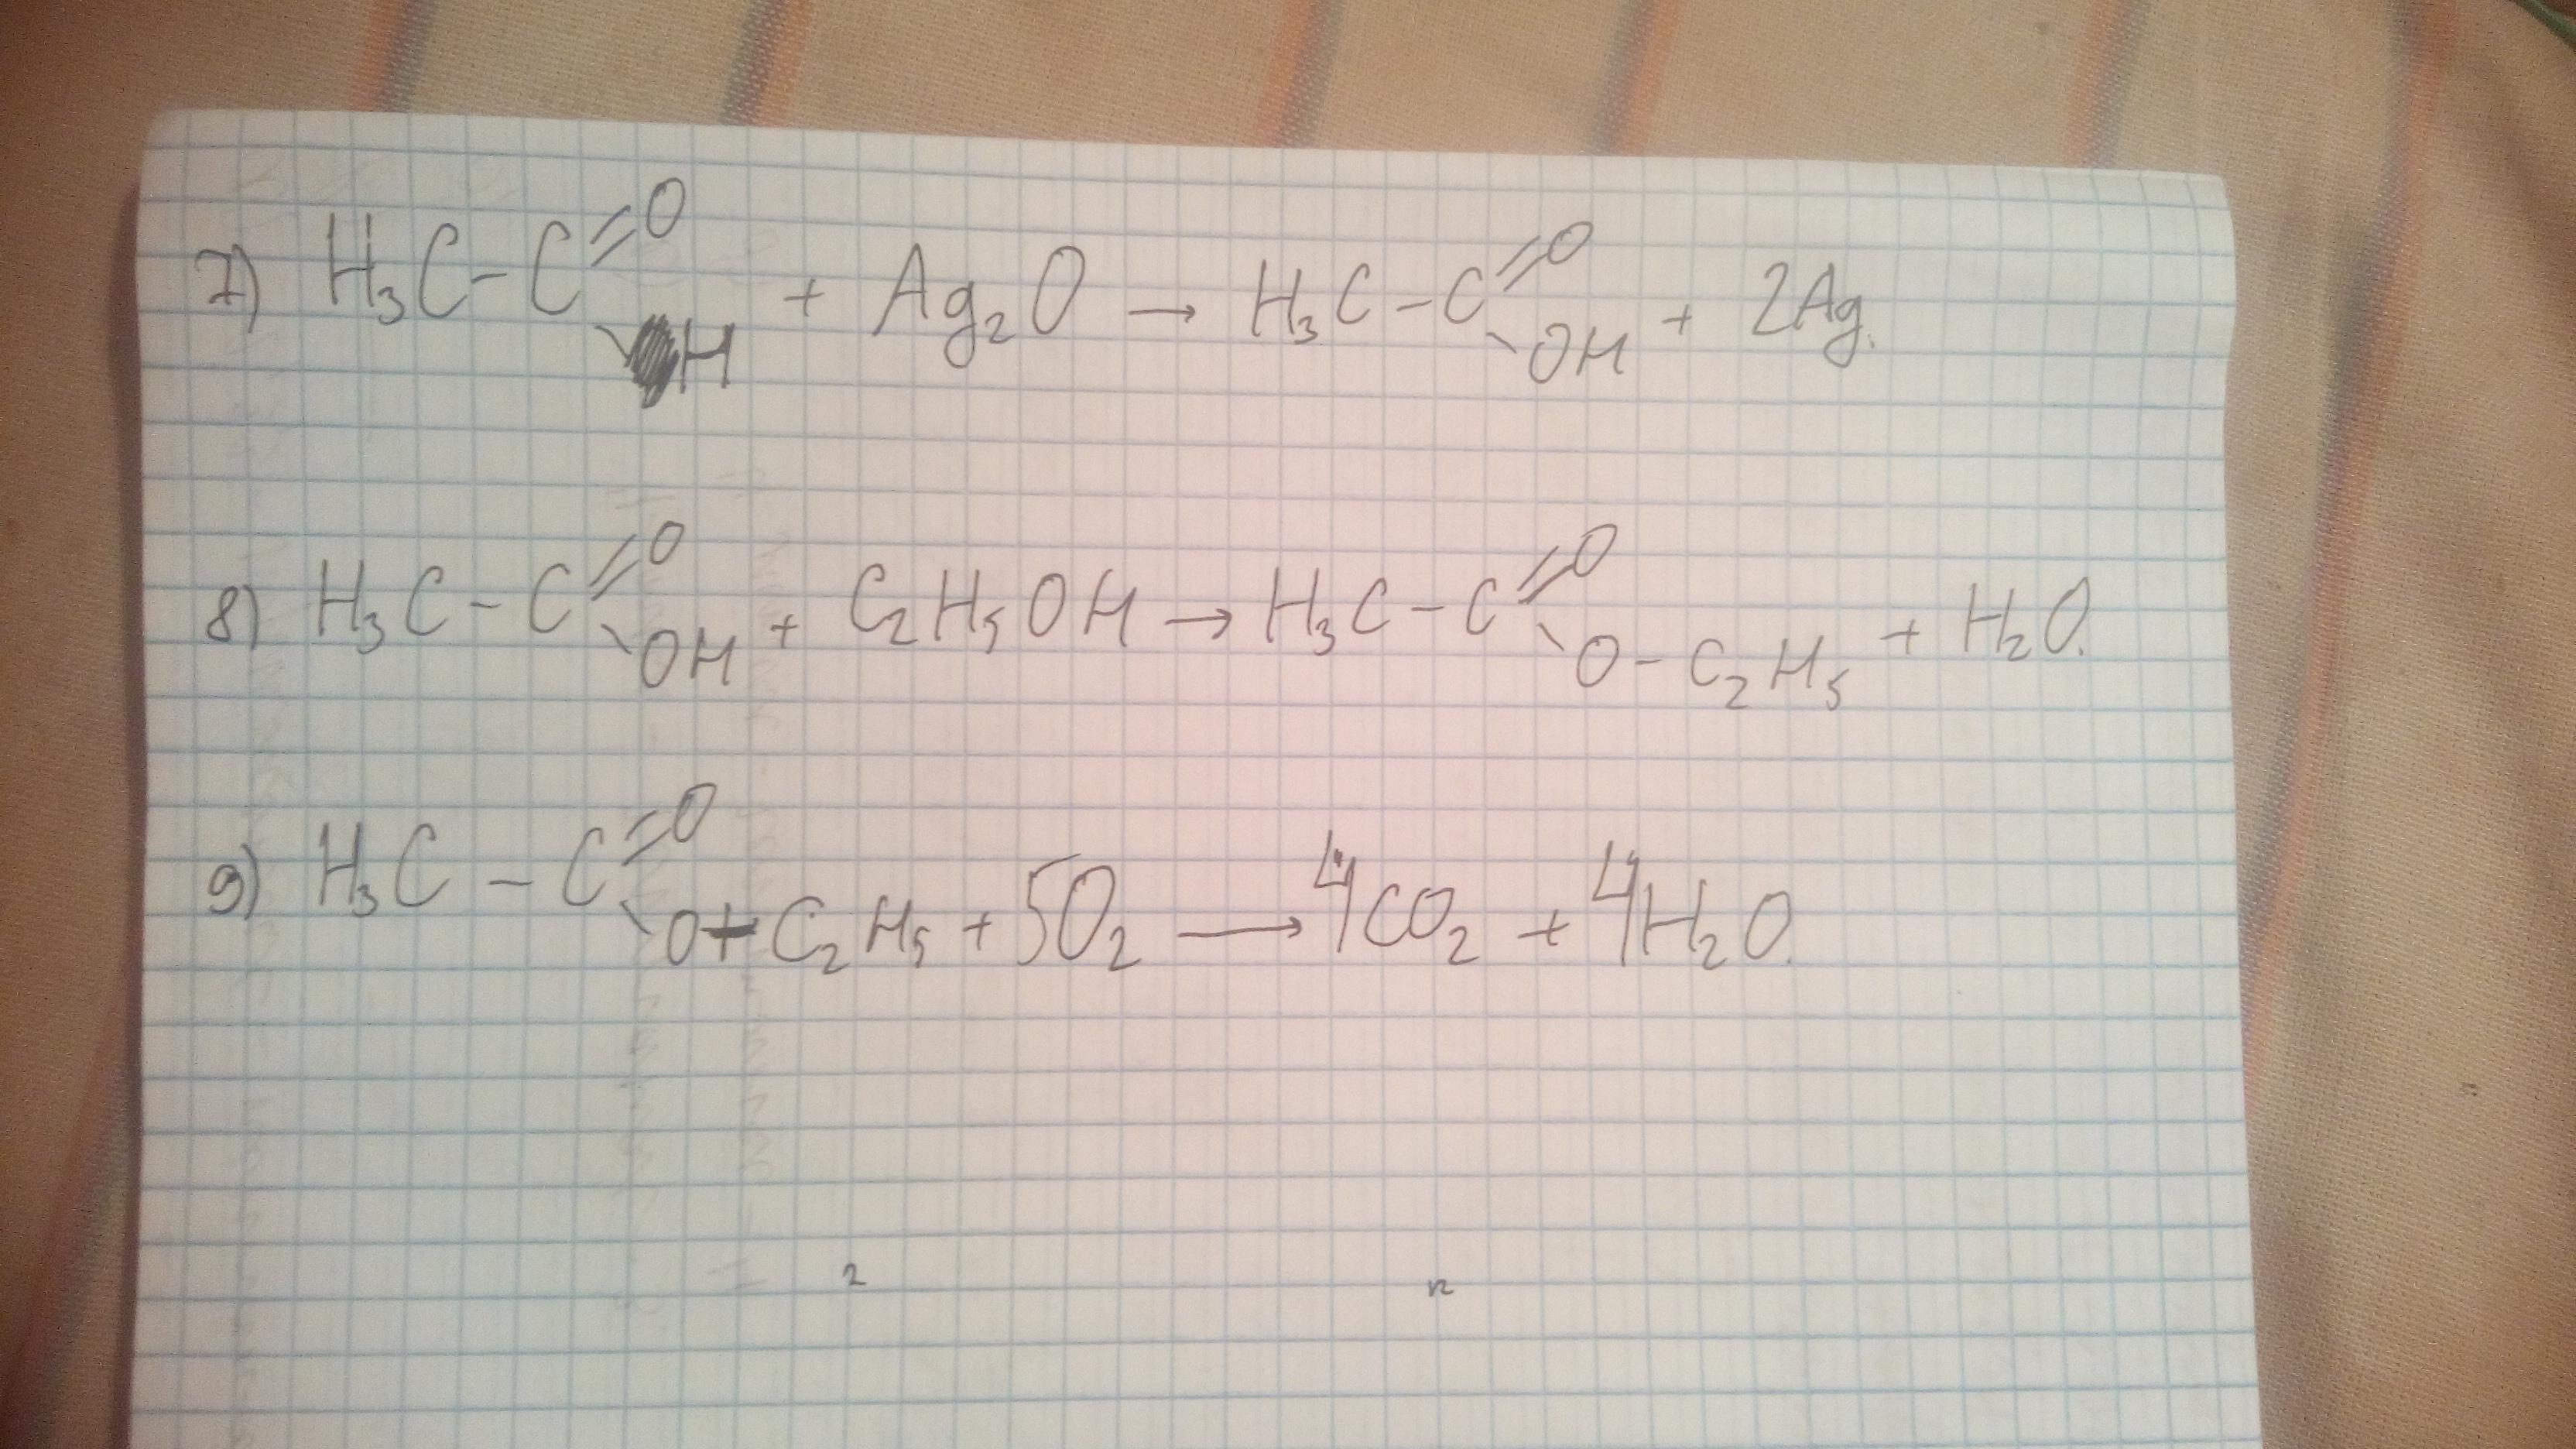 7) H₃C-C=O \H + Ag₂O → H₃C-C=O \OH + 2Ag.
8) H₃C-C=O \OH + C₂H₅OH → H₃C-C=O \O-C₂H₅ + H₂O.
9) H₃C-C=O \O-C₂H₅ + 5O₂ → 4CO₂ + 4H₂O.